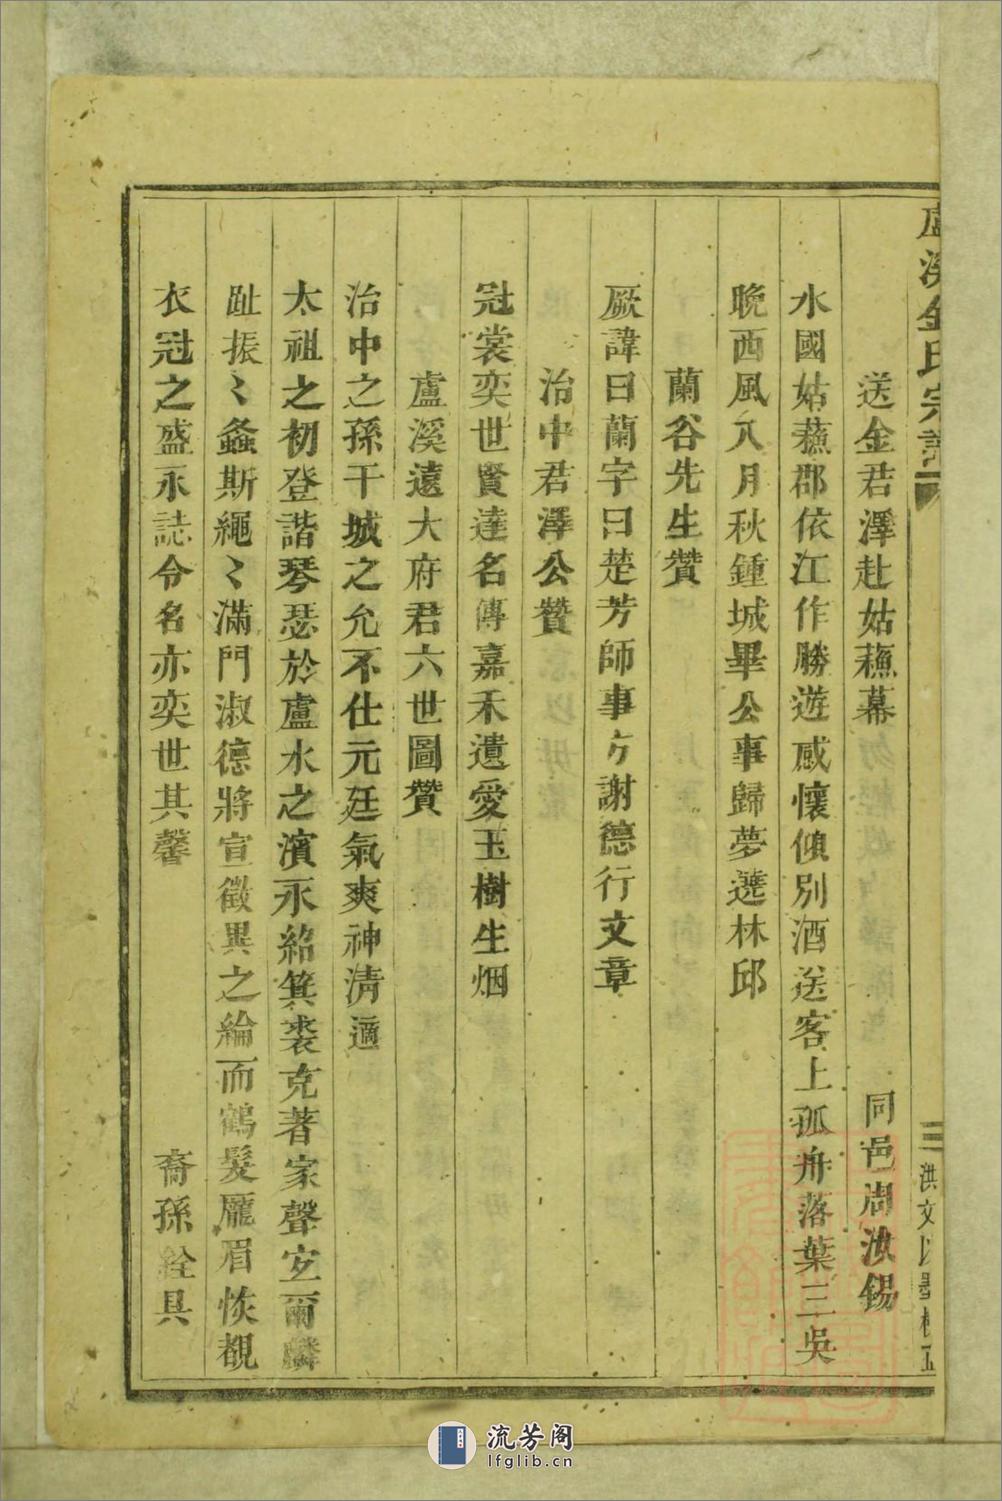 盧溪金氏宗譜
三
洪文以墨梅五
送金君澤赴姑蘓幕
同邑周汝錫
水國姑蘓郡依江作勝遊感懷傾別酒送客上孤舟落葉三吳
晚西風八月秋鍾城畢公事歸夢遶林邱
蘭谷先生贊
厥諱曰蘭字曰楚芳師事
謝德行文章
治中君澤公贊
冠裳奕世賢達名傳嘉禾遺愛玉樹生烟
盧溪遠大府君六世圖贊
治中之孫干城之允不仕元廷氣爽神清適
太祖之初登諧琴瑟於盧水之濱永紹箕裘克著家聲宜爾麟
趾振〻螽斯繩〻滿門淑德將宣徵異之綸而鶴髮龐眉恢覩
衣冠之盛永誌令名亦奕世其馨
裔孫銓具
流芳阁
lfglib.cn